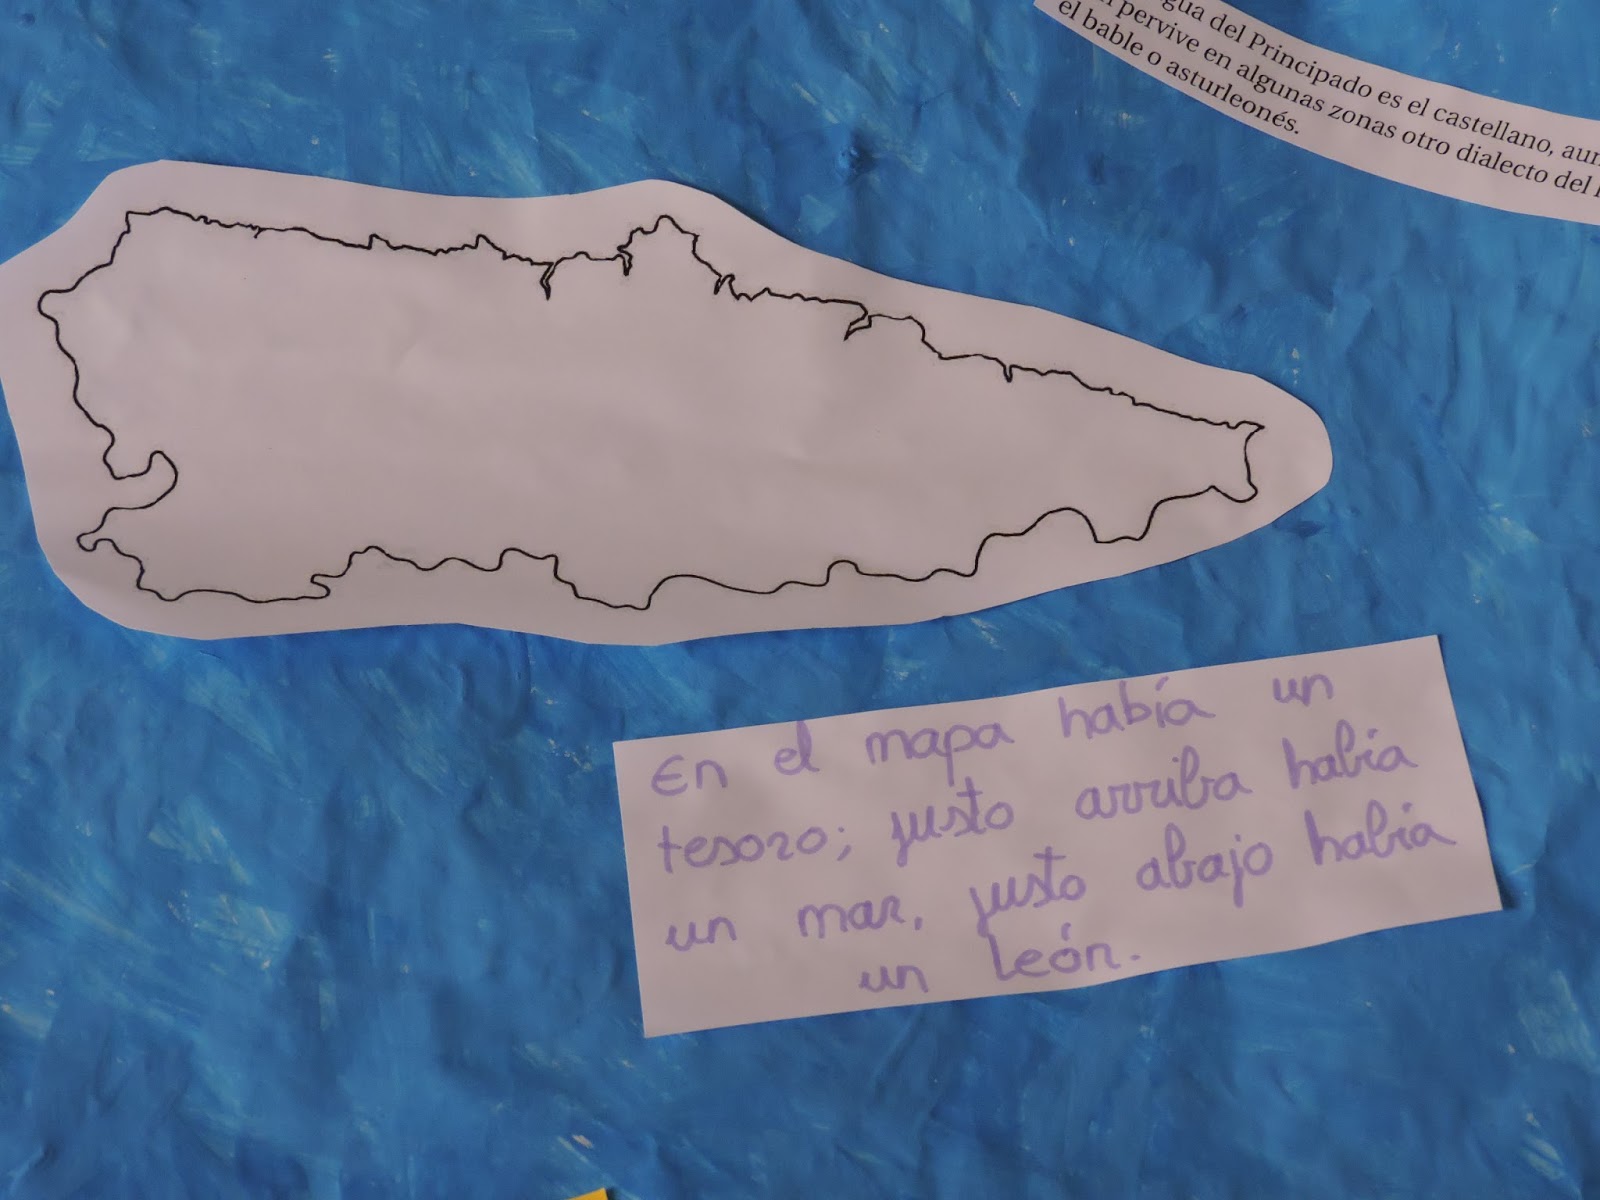 gua del Principado es el castellano, aun
pervive en algunas zonas otro dialecto del
el bable o asturleonés.
En el mapa había un
tesoro; justo arriba había
un mar, justo abajo había
un león.